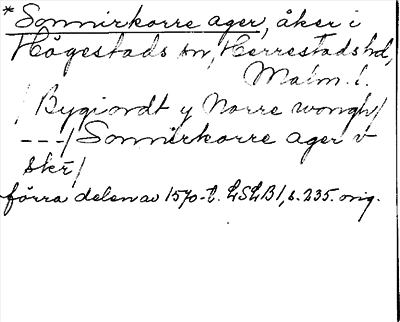 *Sonnirkorre ager, åker i
Högestads sn, Herrestads hd,
Malm. l.
/ Bygiordt y Norre wongh/
---/ Sonnirkorre ager v
skr/
förra delen av 1570-t. LSLB1, s. 235. orig.